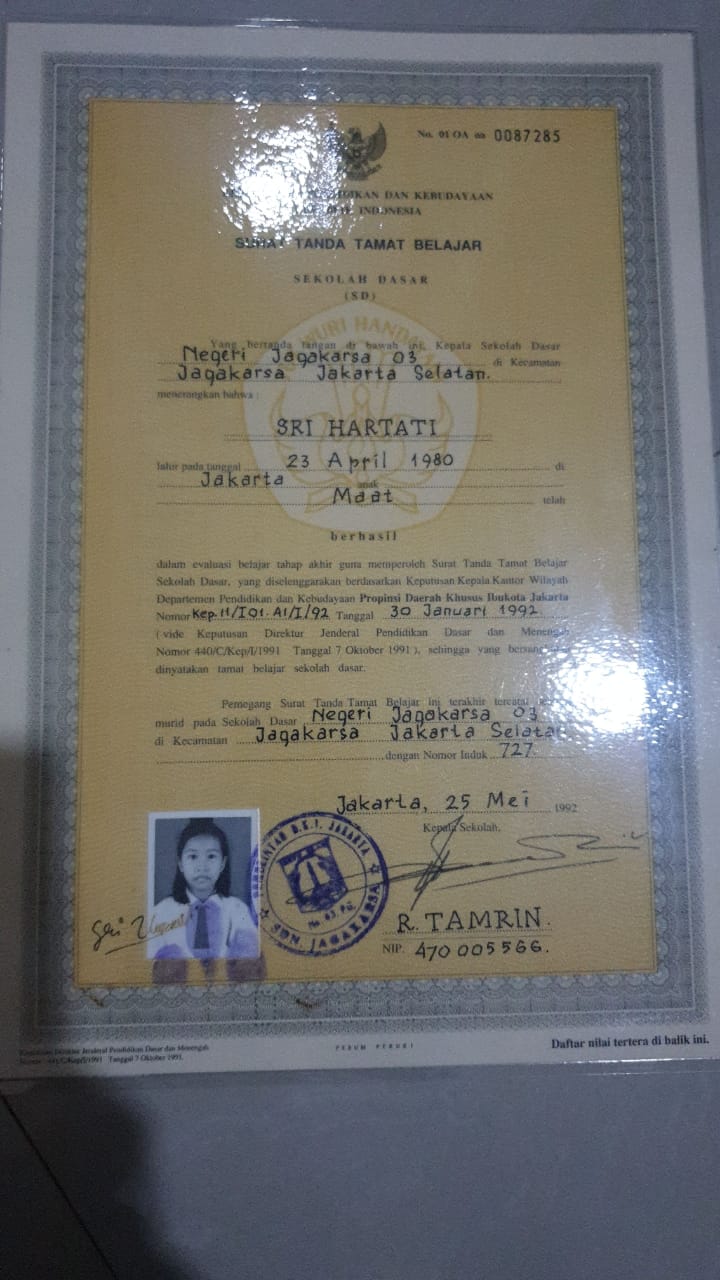 No. 01 OA oa 0087285
DIKAN DAN KEBUDAYAAN
INDONESIA
SURAT TANDA TAMAT BELAJAR
SEKOLAH DASAR
(SD)
Yang bertanda tangan di bawah ini, Kepala Sekolah Dasar
Negeri Jagakarsa 03 di Kecamatan
Jagakarsa Jakarta Selatan.
menerangkan bahwa :
SRI HARTATI
lahir pada tanggal 23 April 1980 di
Jakarta anak
Maat telah
berhasil
dalam evaluasi belajar tahap akhir guna memperoleh Surat Tanda Tamat Belajar
Sekolah Dasar, yang diselenggarakan berdasarkan Keputusan Kepala Kantor Wilayah
Departemen Pendidikan dan Kebudayaan Propinsi Daerah Khusus Ibukota Jakarta
Nomor Kep.11/I01.A1/I/92 Tanggal 30 Januari 1992
( vide Keputusan Direktur Jenderal Pendidikan Dasar dan Menengah
Nomor 440/C/Kep/I/1991 Tanggal 7 Oktober 1991 ), sehingga yang
dinyatakan tamat belajar sekolah dasar.
Pemegang Surat Tanda Tamat Belajar ini terakhir tercatat
murid pada Sekolah Dasar Negeri Jagakarsa 03
di Kecamatan Jagakarsa Jakarta Selatan
dengan Nomor Induk 727
Jakarta, 25 Mei 1992
Kepala Sekolah,
PEMERINTAH D.K.I. JAKARTA
No. 03 Pg.
SDN JAGAKARSA
Sri
R. TAMRIN.
NIP. 470 005 566.
Keputusan Direktur Jenderal Pendidikan Dasar dan Menengah
Nomor : 441/C/Kep/I/1991 Tanggal 7 Oktober 1991.
PERUM PERURI
Daftar nilai tertera di balik ini.